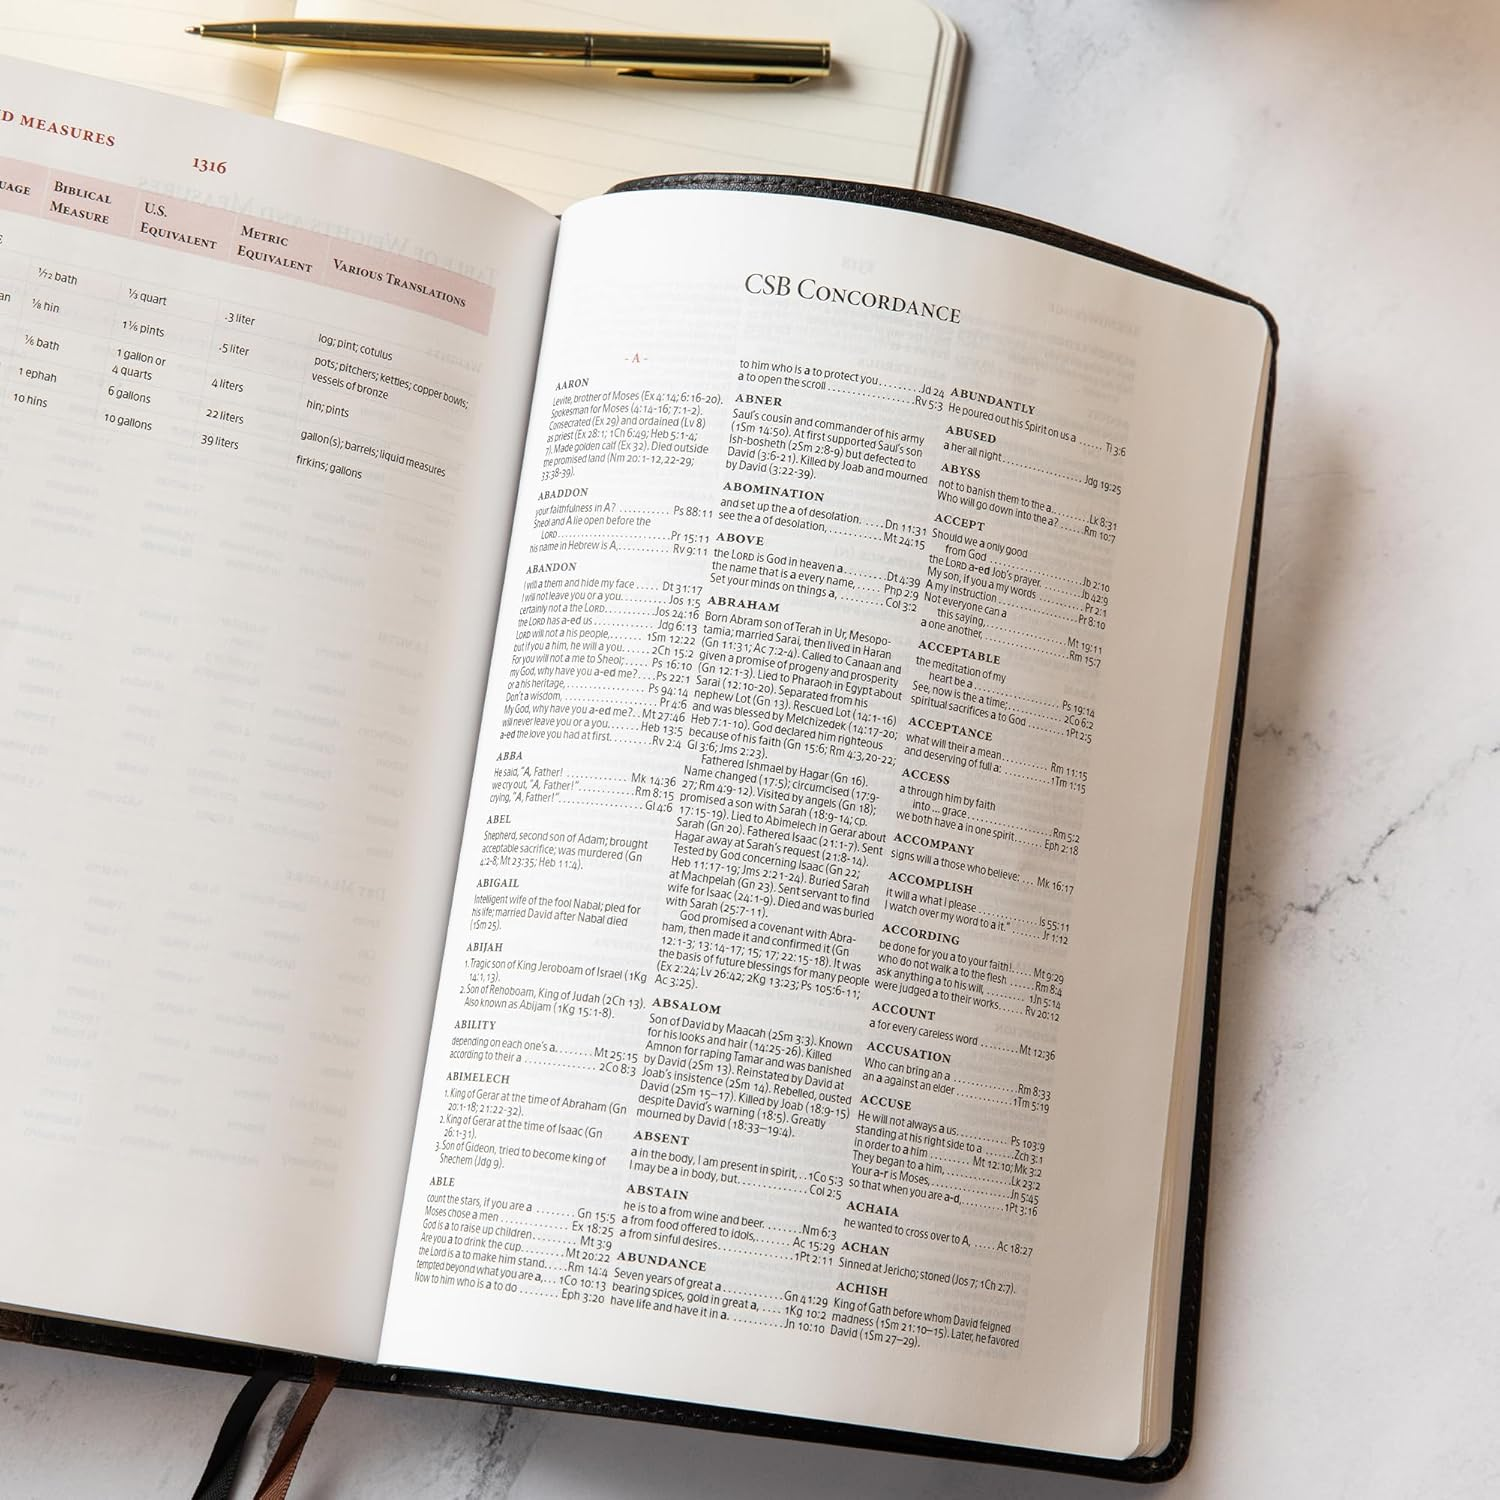 D MEASURES
1316
UAGE
BIBLICAL
MEASURE
U.S.
EQUIVALENT
METRIC
EQUIVALENT
VARIOUS TRANSLATIONS
1/72 bath
1/3 quart
.3 liter
log; pint; cotulus
an
1/8 hin
1 1/6 pints
.5 liter
pots; pitchers; kettles; copper bowls;
vessels of bronze
1/6 bath
1 gallon or
4 quarts
4 liters
hin; pints
1 ephah
6 gallons
22 liters
gallon(s); barrels; liquid measures
10 hins
10 gallons
39 liters
firkins; gallons
CSB CONCORDANCE
- A -
AARON
Levite, brother of Moses (Ex 4:14; 6:16-20).
Spokesman for Moses (4:14-16; 7:1-2).
Consecrated (Ex 29) and ordained (Lv 8)
as priest (Ex 28:1; 1Ch 6:49; Heb 5:1-4;
7). Made golden calf (Ex 32). Died outside
the promised land (Nm 20:1-12,22-29;
33:38-39).
ABADDON
your faithfulness in A? ............ Ps 88:11
Sheol and A lie open before the
LORD ............ Pr 15:11
his name in Hebrew is A, ............ Rv 9:11
ABANDON
I will a them and hide my face ..... Dt 31:17
I will not leave you or a you. ..... Jos 1:5
certainly not a the LORD ..... Jos 24:16
the LORD has a-ed us ..... Jdg 6:13
LORD will not a his people, ..... 1Sm 12:22
but if you a him, he will a you. ..... 2Ch 15:2
For you will not a me to Sheol; ..... Ps 16:10
my God, why have you a-ed me? .... Ps 22:1
or a his heritage, ..... Ps 94:14
Don't a wisdom, ..... Pr 4:6
My God, why have you a-ed me? .. Mt 27:46
will never leave you or a you. ..... Heb 13:5
a-ed the love you had at first. ..... Rv 2:4
ABBA
He said, "A, Father! ..... Mk 14:36
we cry out, "A, Father!" ..... Rm 8:15
crying, "A, Father!" ..... Gl 4:6
ABEL
Shepherd, second son of Adam; brought
acceptable sacrifice; was murdered (Gn
4:2-8; Mt 23:35; Heb 11:4).
ABIGAIL
Intelligent wife of the fool Nabal; pled for
his life; married David after Nabal died
(1Sm 25).
ABIJAH
1. Tragic son of King Jeroboam of Israel (1Kg
14:1, 13).
2. Son of Rehoboam, King of Judah (2Ch 13).
Also known as Abijam (1Kg 15:1-8).
ABILITY
depending on each one's a. ..... Mt 25:15
according to their a ..... 2Co 8:3
ABIMELECH
1. King of Gerar at the time of Abraham (Gn
20:1-18; 21:22-32).
2. King of Gerar at the time of Isaac (Gn
26:1-31).
3. Son of Gideon, tried to become king of
Shechem (Jdg 9).
ABLE
count the stars, if you are a ..... Gn 15:5
Moses chose a men ..... Ex 18:25
God is a to raise up children ..... Mt 3:9
Are you a to drink the cup ..... Mt 20:22
the Lord is a to make him stand. ..... Rm 14:4
tempted beyond what you are a, ... 1Co 10:13
Now to him who is a to do ..... Eph 3:20
to him who is a to protect you ..... Jd 24
a to open the scroll ..... Rv 5:3
ABNER
Saul's cousin and commander of his army
(1Sm 14:50). At first supported Saul's son
Ish-bosheth (2Sm 2:8-9) but defected to
David (3:6-21). Killed by Joab and mourned
by David (3:22-39).
ABOMINATION
and set up the a of desolation. ..... Dn 11:31
see the a of desolation, ..... Mt 24:15
ABOVE
the LORD is God in heaven a ..... Dt 4:39
the name that is a every name, ..... Php 2:9
Set your minds on things a, ..... Col 3:2
ABRAHAM
Born Abram son of Terah in Ur, Mesopo-
tamia; married Sarai, then lived in Haran
(Gn 11:31; Ac 7:2-4). Called to Canaan and
given a promise of progeny and prosperity
(Gn 12:1-3). Lied to Pharaoh in Egypt about
Sarai (12:10-20). Separated from his
nephew Lot (Gn 13). Rescued Lot (14:1-16)
and was blessed by Melchizedek (14:17-20;
Heb 7:1-10). God declared him righteous
because of his faith (Gn 15:6; Rm 4:3,20-22;
Gl 3:6; Jms 2:23).
Fathered Ishmael by Hagar (Gn 16).
Name changed (17:5); circumcised (17:9-
27; Rm 4:9-12). Visited by angels (Gn 18);
promised a son with Sarah (18:9-14; cp.
17:15-19). Lied to Abimelech in Gerar about
Sarah (Gn 20). Fathered Isaac (21:1-7). Sent
Hagar away at Sarah's request (21:8-14).
Tested by God concerning Isaac (Gn 22;
Heb 11:17-19; Jms 2:21-24). Buried Sarah
at Machpelah (Gn 23). Sent servant to find
wife for Isaac (24:1-9). Died and was buried
with Sarah (25:7-11).
God promised a covenant with Abra-
ham, then made it and confirmed it (Gn
12:1-3; 13:14-17; 15; 17; 22:15-18). It was
the basis of future blessings for many people
(Ex 2:24; Lv 26:42; 2Kg 13:23; Ps 105:6-11;
Ac 3:25).
ABSALOM
Son of David by Maacah (2Sm 3:3). Known
for his looks and hair (14:25-26). Killed
Amnon for raping Tamar and was banished
by David (2Sm 13). Reinstated by David at
Joab's insistence (2Sm 14). Rebelled, ousted
David (2Sm 15–17). Killed by Joab (18:9-15)
despite David's warning (18:5). Greatly
mourned by David (18:33–19:4).
ABSENT
a in the body, I am present in spirit, .. 1Co 5:3
I may be a in body, but ..... Col 2:5
ABSTAIN
he is to a from wine and beer. ..... Nm 6:3
a from food offered to idols, ..... Ac 15:29
a from sinful desires ..... 1Pt 2:11
ABUNDANCE
Seven years of great a ..... Gn 41:29
bearing spices, gold in great a, .... 1Kg 10:2
have life and have it in a. ..... Jn 10:10
ABUNDANTLY
He poured out his Spirit on us a ...... Ti 3:6
ABUSED
a her all night ..... Jdg 19:25
ABYSS
not to banish them to the a. ..... Lk 8:31
Who will go down into the a? ..... Rm 10:7
ACCEPT
Should we a only good
from God ..... Jb 2:10
the LORD a-ed Job's prayer. ..... Jb 42:9
My son, if you a my words ..... Pr 2:1
A my instruction ..... Pr 8:10
Not everyone can a
this saying, ..... Mt 19:11
a one another, ..... Rm 15:7
ACCEPTABLE
the meditation of my
heart be a ..... Ps 19:14
See, now is the a time; ..... 2Co 6:2
spiritual sacrifices a to God ..... 1Pt 2:5
ACCEPTANCE
what will their a mean ..... Rm 11:15
and deserving of full a: ..... 1Tm 1:15
ACCESS
a through him by faith
into ... grace ..... Rm 5:2
we both have a in one spirit ..... Eph 2:18
ACCOMPANY
signs will a those who believe: ... Mk 16:17
ACCOMPLISH
it will a what I please ..... Is 55:11
I watch over my word to a it." ...... Jr 1:12
ACCORDING
be done for you a to your faith! ..... Mt 9:29
who do not walk a to the flesh ..... Rm 8:4
ask anything a to his will, ..... 1Jn 5:14
were judged a to their works ..... Rv 20:12
ACCOUNT
a for every careless word ..... Mt 12:36
ACCUSATION
Who can bring an a ..... Rm 8:33
an a against an elder ..... 1Tm 5:19
ACCUSE
He will not always a us. ..... Ps 103:9
standing at his right side to a ..... Zch 3:1
in order to a him ..... Mt 12:10; Mk 3:2
They began to a him, ..... Lk 23:2
Your a-r is Moses, ..... Jn 5:45
so that when you are a-d, ..... 1Pt 3:16
ACHAIA
he wanted to cross over to A, ..... Ac 18:27
ACHAN
Sinned at Jericho; stoned (Jos 7; 1Ch 2:7).
ACHISH
King of Gath before whom David feigned
madness (1Sm 21:10–15). Later, he favored
David (1Sm 27–29).